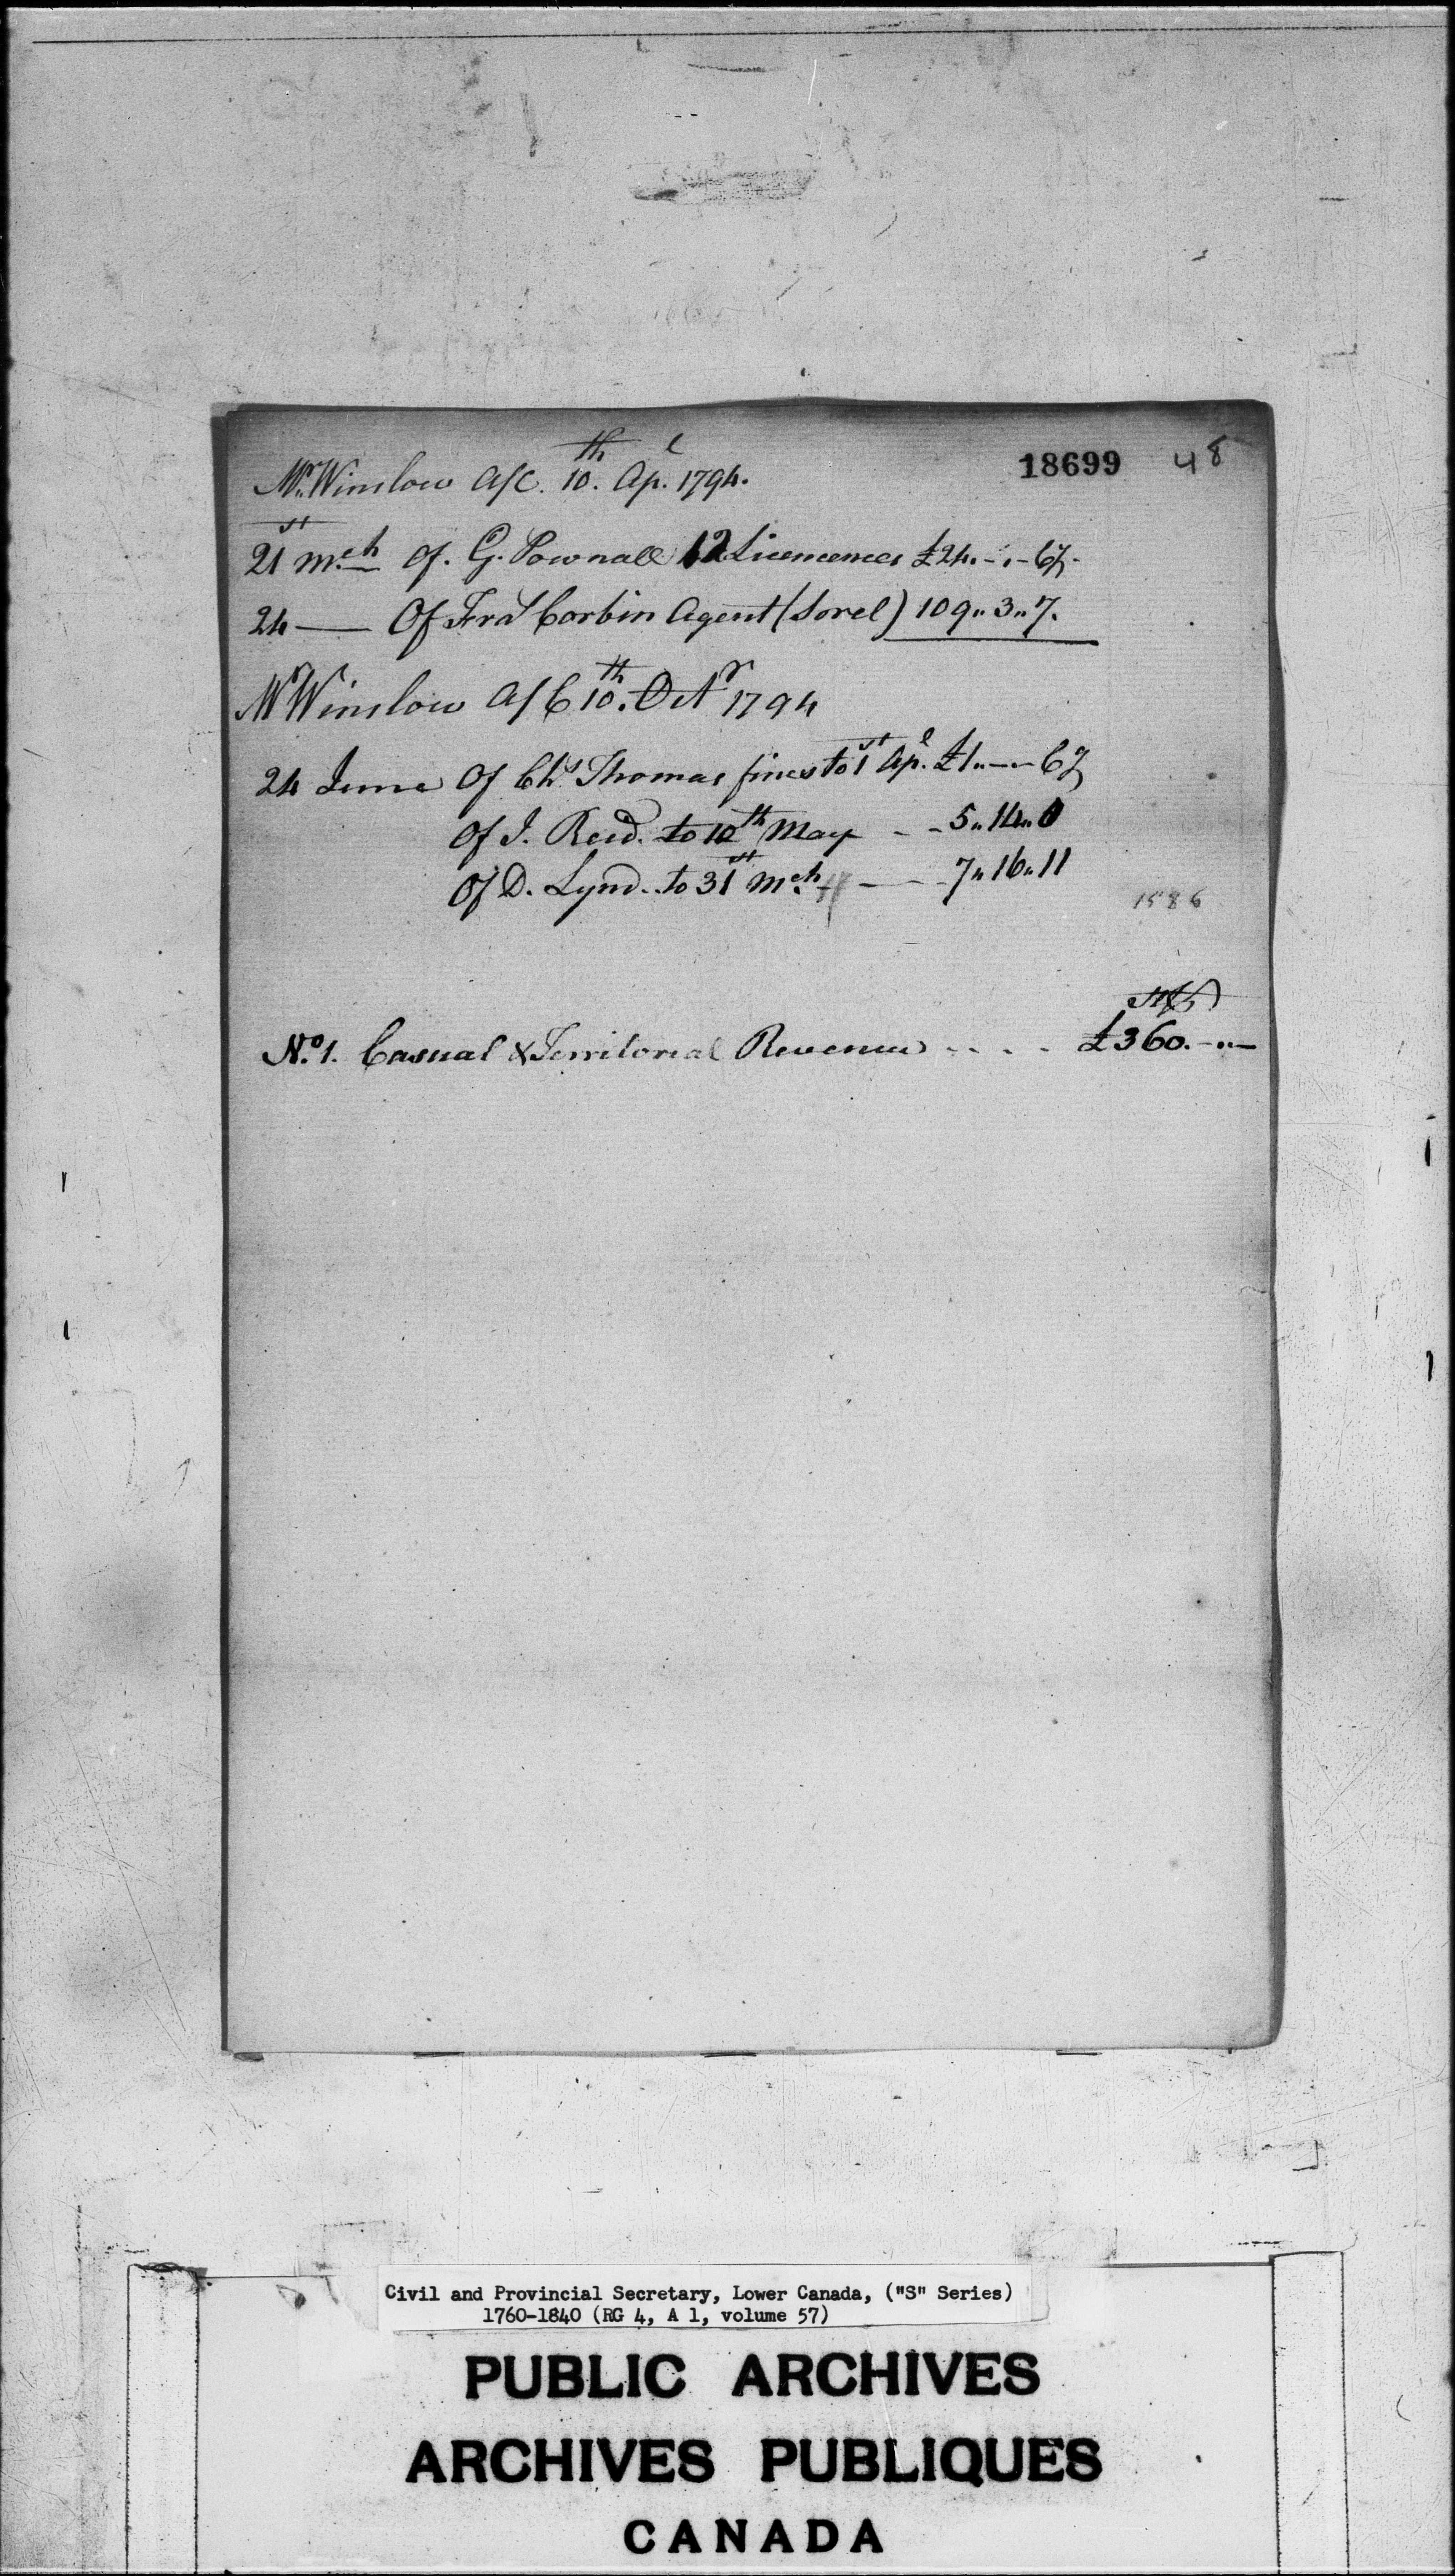 18699 48
Mr. Winslow a/c. 10th. Apl. 1794.
21st mch of. G. Pownall 12 Licencences £24.-.-
24 — Of Frs Corbin Agent (Sorel) 109.. 3.. 7.
Mr Winslow a/C 10th. Octr 1794
24 June Of Chs Thomas fines to 1st Apl. £1..-..-
Of J. Reid. to 10th May - - 5.. 14.. 0
Of D. Lynd.. to 31st mch — 7.. 16.. 11
1586
No. 1. Casual & Territorial Revenue . . . . £360.-..-
Civil and Provincial Secretary, Lower Canada, ("S" Series)
1760-1840 (RG 4, A 1, volume 57)
PUBLIC ARCHIVES
ARCHIVES PUBLIQUES
CANADA